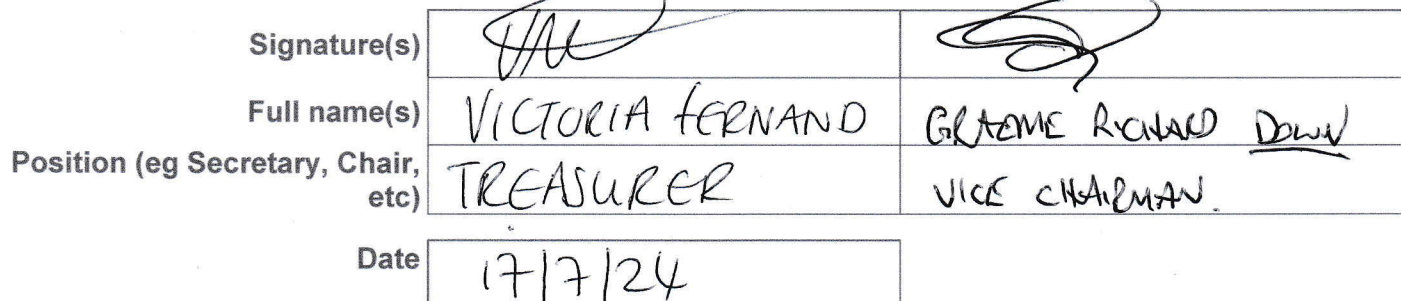 Signature(s)
Full name(s) VICTORIA FERNAND GRAEME RICHARD DOWN
Position (eg Secretary, Chair, etc) TREASURER VICE CHAIRMAN.
Date 17/7/24